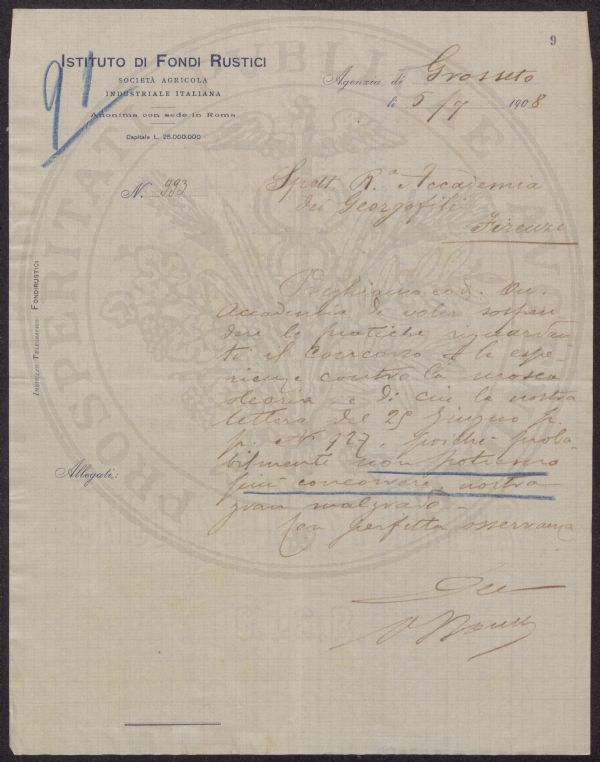 9
91
ISTITUTO DI FONDI RUSTICI
SOCIETÀ AGRICOLA
INDUSTRIALE ITALIANA
Anonima con sede in Roma
Capitale L. 25.000.000
Agenzia di Grosseto
li 5/7 1908
N. 993
Spett. R.a Accademia
dei Georgofili
Firenze
INDIRIZZO TELEGRAFICO: FONDIRUSTICI
Preghiamo cod. On.
Accademia di voler sospen
dere le pratiche riguardan
te il Concorso per le espe-
rienze contro la mosca
olearia e di cui la nostra
lettera del 25 Giugno p.
p. N. 127, poichè proba
bilmente non potremo
più concorrere, nostro
gran malgrado.
Con perfetta osservanza
Allegati:
PROSPERITATI PUBLICAE